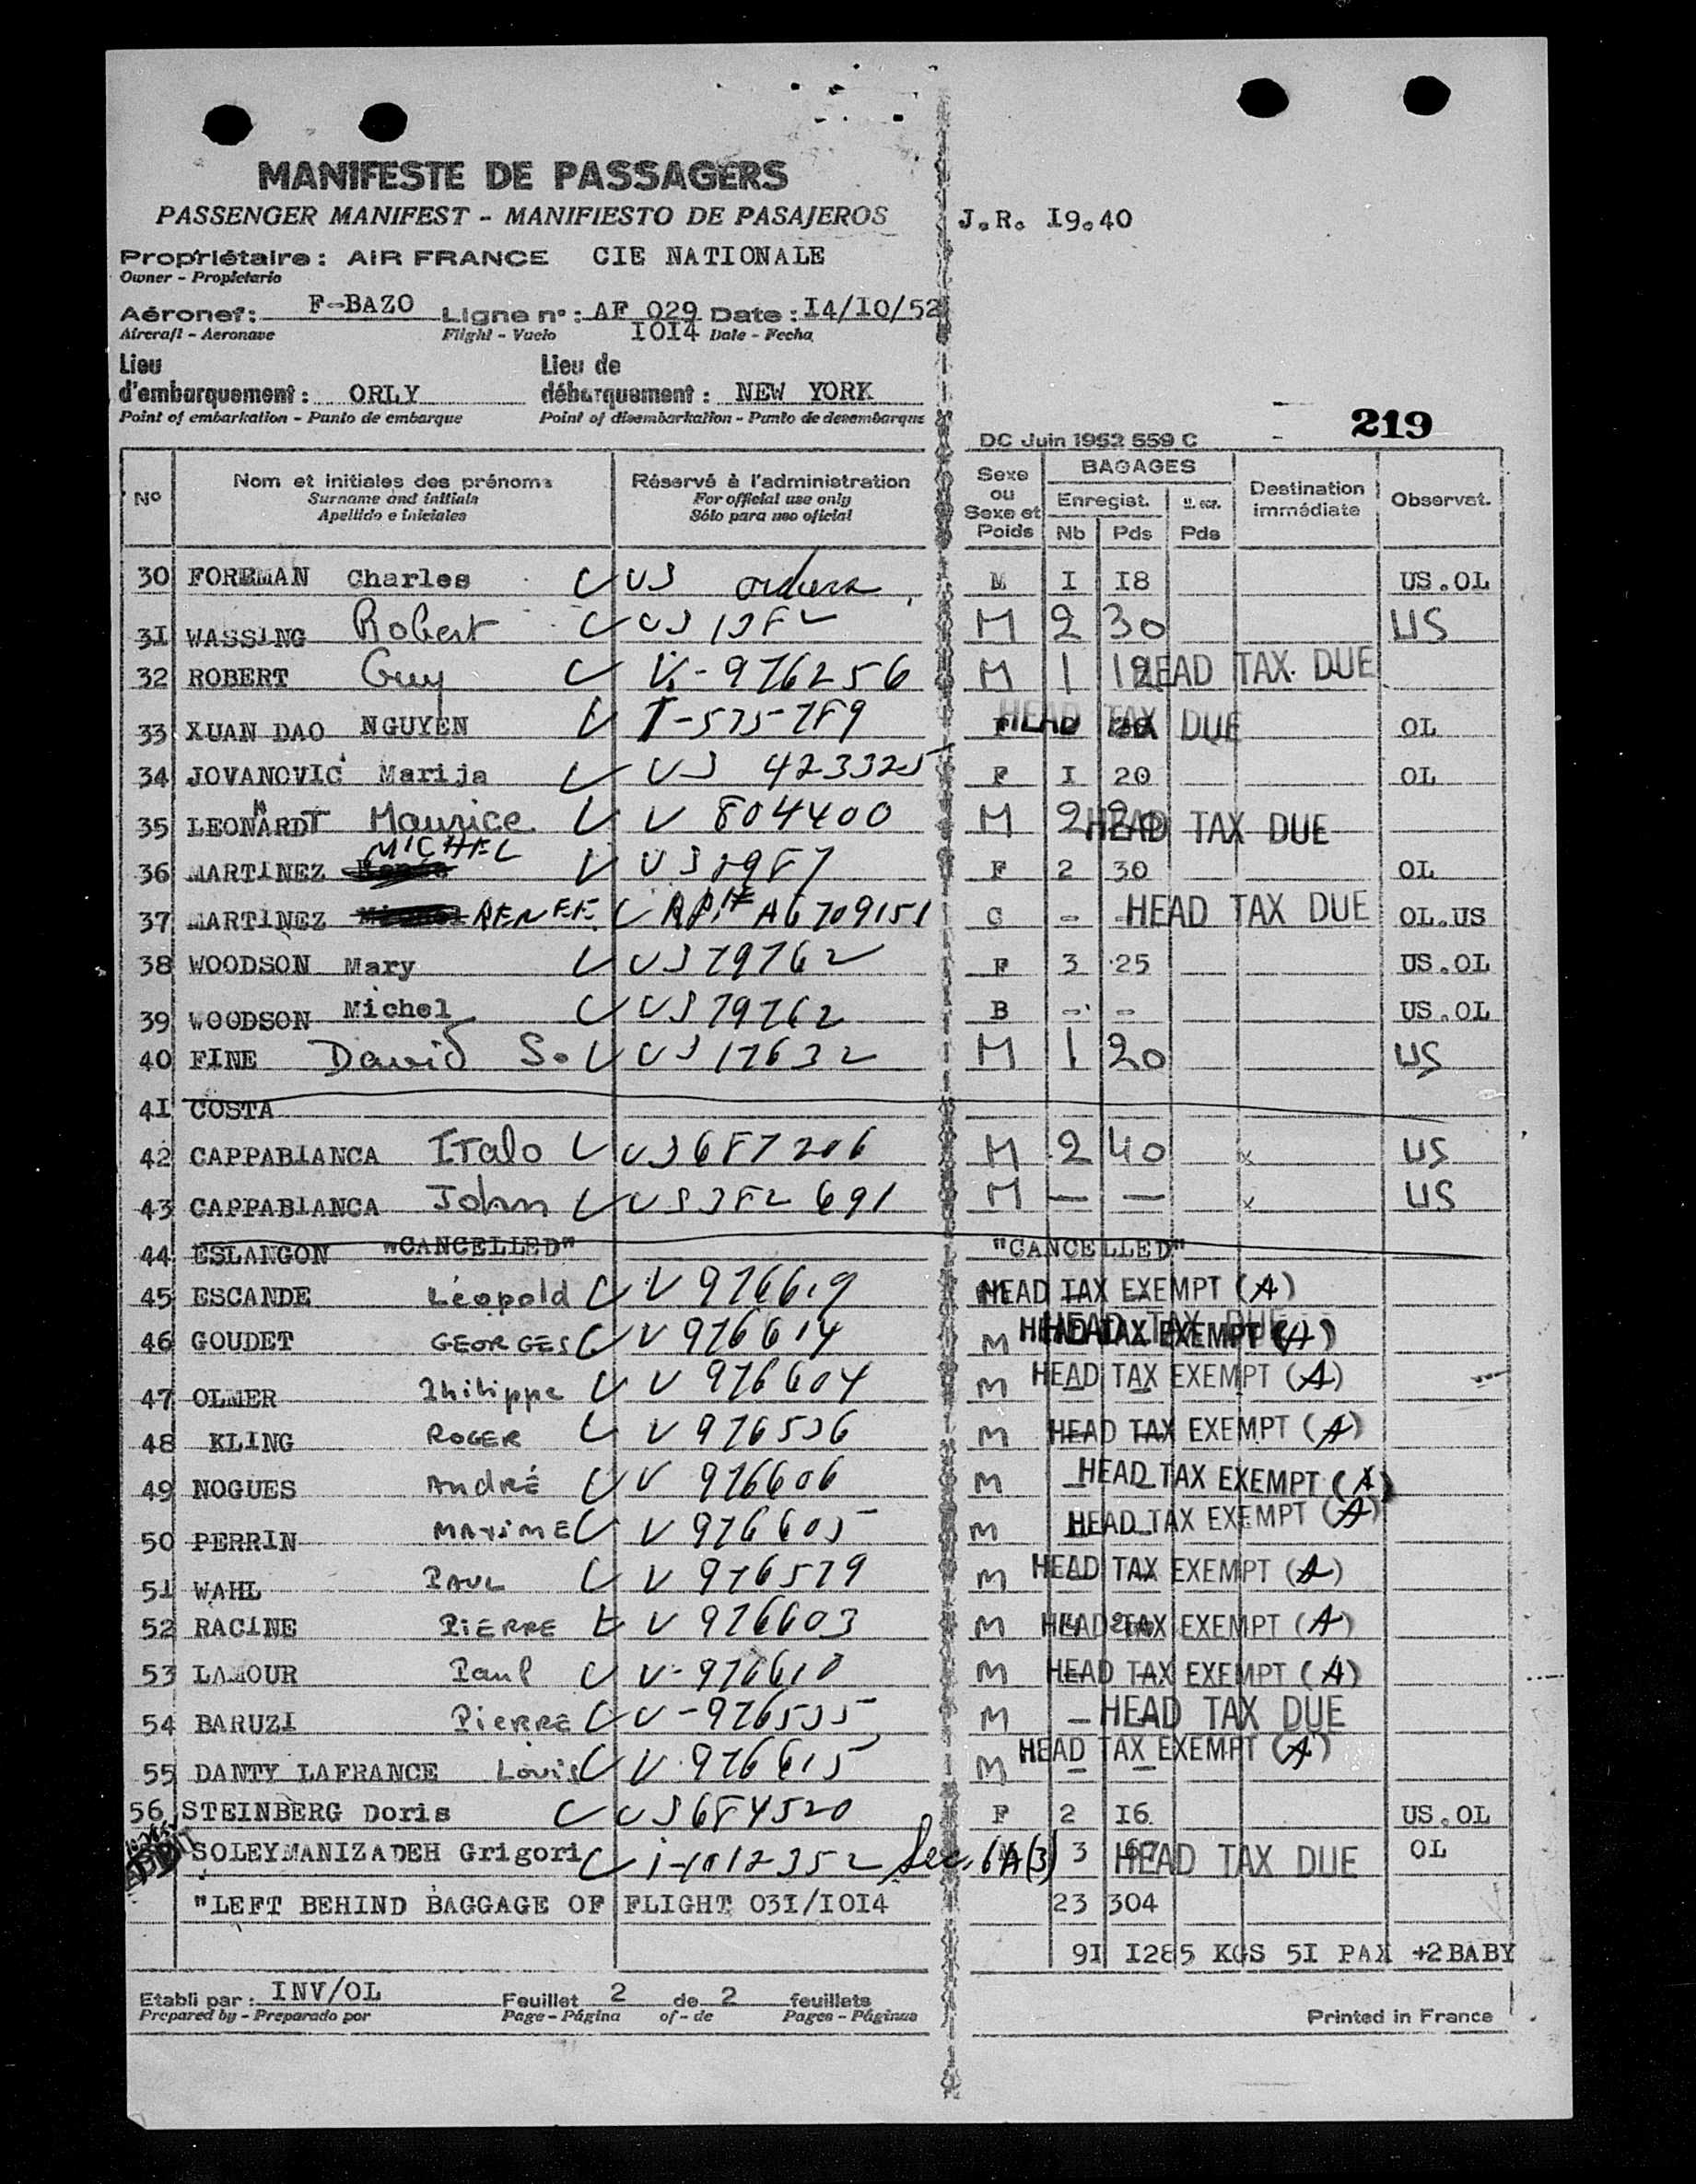 MANIFESTE DE PASSAGERS
PASSENGER MANIFEST - MANIFIESTO DE PASAJEROS J.R. I9.40
Propriétaire : AIR FRANCE CIE NATIONALE
Owner - Propietario
Aéronef : F-BAZO Ligne n° : AF 029 Date : I4/I0/52
Aircraft - Aeronave Flight - Vuelo I0I4 Date - Fecha
Lieu Lieu de
d'embarquement : ORLY débarquement : NEW YORK
Point of embarkation - Punto de embarque Point of disembarkation - Punto de desembarque 219
DC Juin 1952 559 C
N° Nom et initiales des prénoms Réservé à l'administration Sexe ou Sexe et Poids BAGAGES Destination immédiate Observat.
Surname and initials For official use only Enregist.
Apellido e iniciales Sólo para uso oficial Nb Pds Pds
30 FOREMAN Charles US orders M I I8 US.OL
3I WASSING Robert M 2 30 US
32 ROBERT Guy V-976256 M 1 HEAD TAX DUE
33 XUAN DAO NGUYEN HEAD TAX DUE OL
34 JOVANOVIC Marija US 423325 F I 20 OL
35 LEONARDT Maurice V 804400 M 2 HEAD TAX DUE
36 MARTINEZ MICHEL F 2 30 OL
37 MARTINEZ RENEE A6709151 C - HEAD TAX DUE OL.US
38 WOODSON Mary US 79762 F 3 25 US.OL
39 WOODSON Michel US 79762 B - - US.OL
40 FINE David S. US 17632 M 1 20 US
4I COSTA
42 CAPPABIANCA Italo US 687206 M 2 40 x US
43 CAPPABIANCA John US 382691 M — — x US
44 ESLANGON "CANCELLED" "CANCELLED"
45 ESCANDE Léopold V 976619 HEAD TAX EXEMPT (A)
46 GOUDET GEORGES V 976614 M HEAD TAX EXEMPT (A)
47 OLMER Philippe V 976604 M HEAD TAX EXEMPT (A)
48 KLING ROGER V 976536 M HEAD TAX EXEMPT (A)
49 NOGUES André V 976606 M HEAD TAX EXEMPT (A)
50 PERRIN MAXIME V 976605 M HEAD TAX EXEMPT (A)
51 WAHL PAUL V 976579 M HEAD TAX EXEMPT (A)
52 RACINE PIERRE V 976603 M HEAD TAX EXEMPT (A)
53 LAMOUR Paul V-976610 M HEAD TAX EXEMPT (A)
54 BARUZI PIERRE V-976535 M - HEAD TAX DUE
55 DANTY LAFRANCE Louis V 976615 M HEAD TAX EXEMPT (A)
56 STEINBERG Doris US 684520 F 2 I6 US.OL
SOLEYMANIZADEH Grigori Sec. 6A(3) 3 HEAD TAX DUE OL
"LEFT BEHIND BAGGAGE OF FLIGHT 03I/I0I4 23 304
9I I285 KGS 5I PAX +2 BABY
Etabli par : INV/OL Feuillet 2 de 2 feuillets
Prepared by - Preparado por Page - Página of - de Pages - Páginas Printed in France